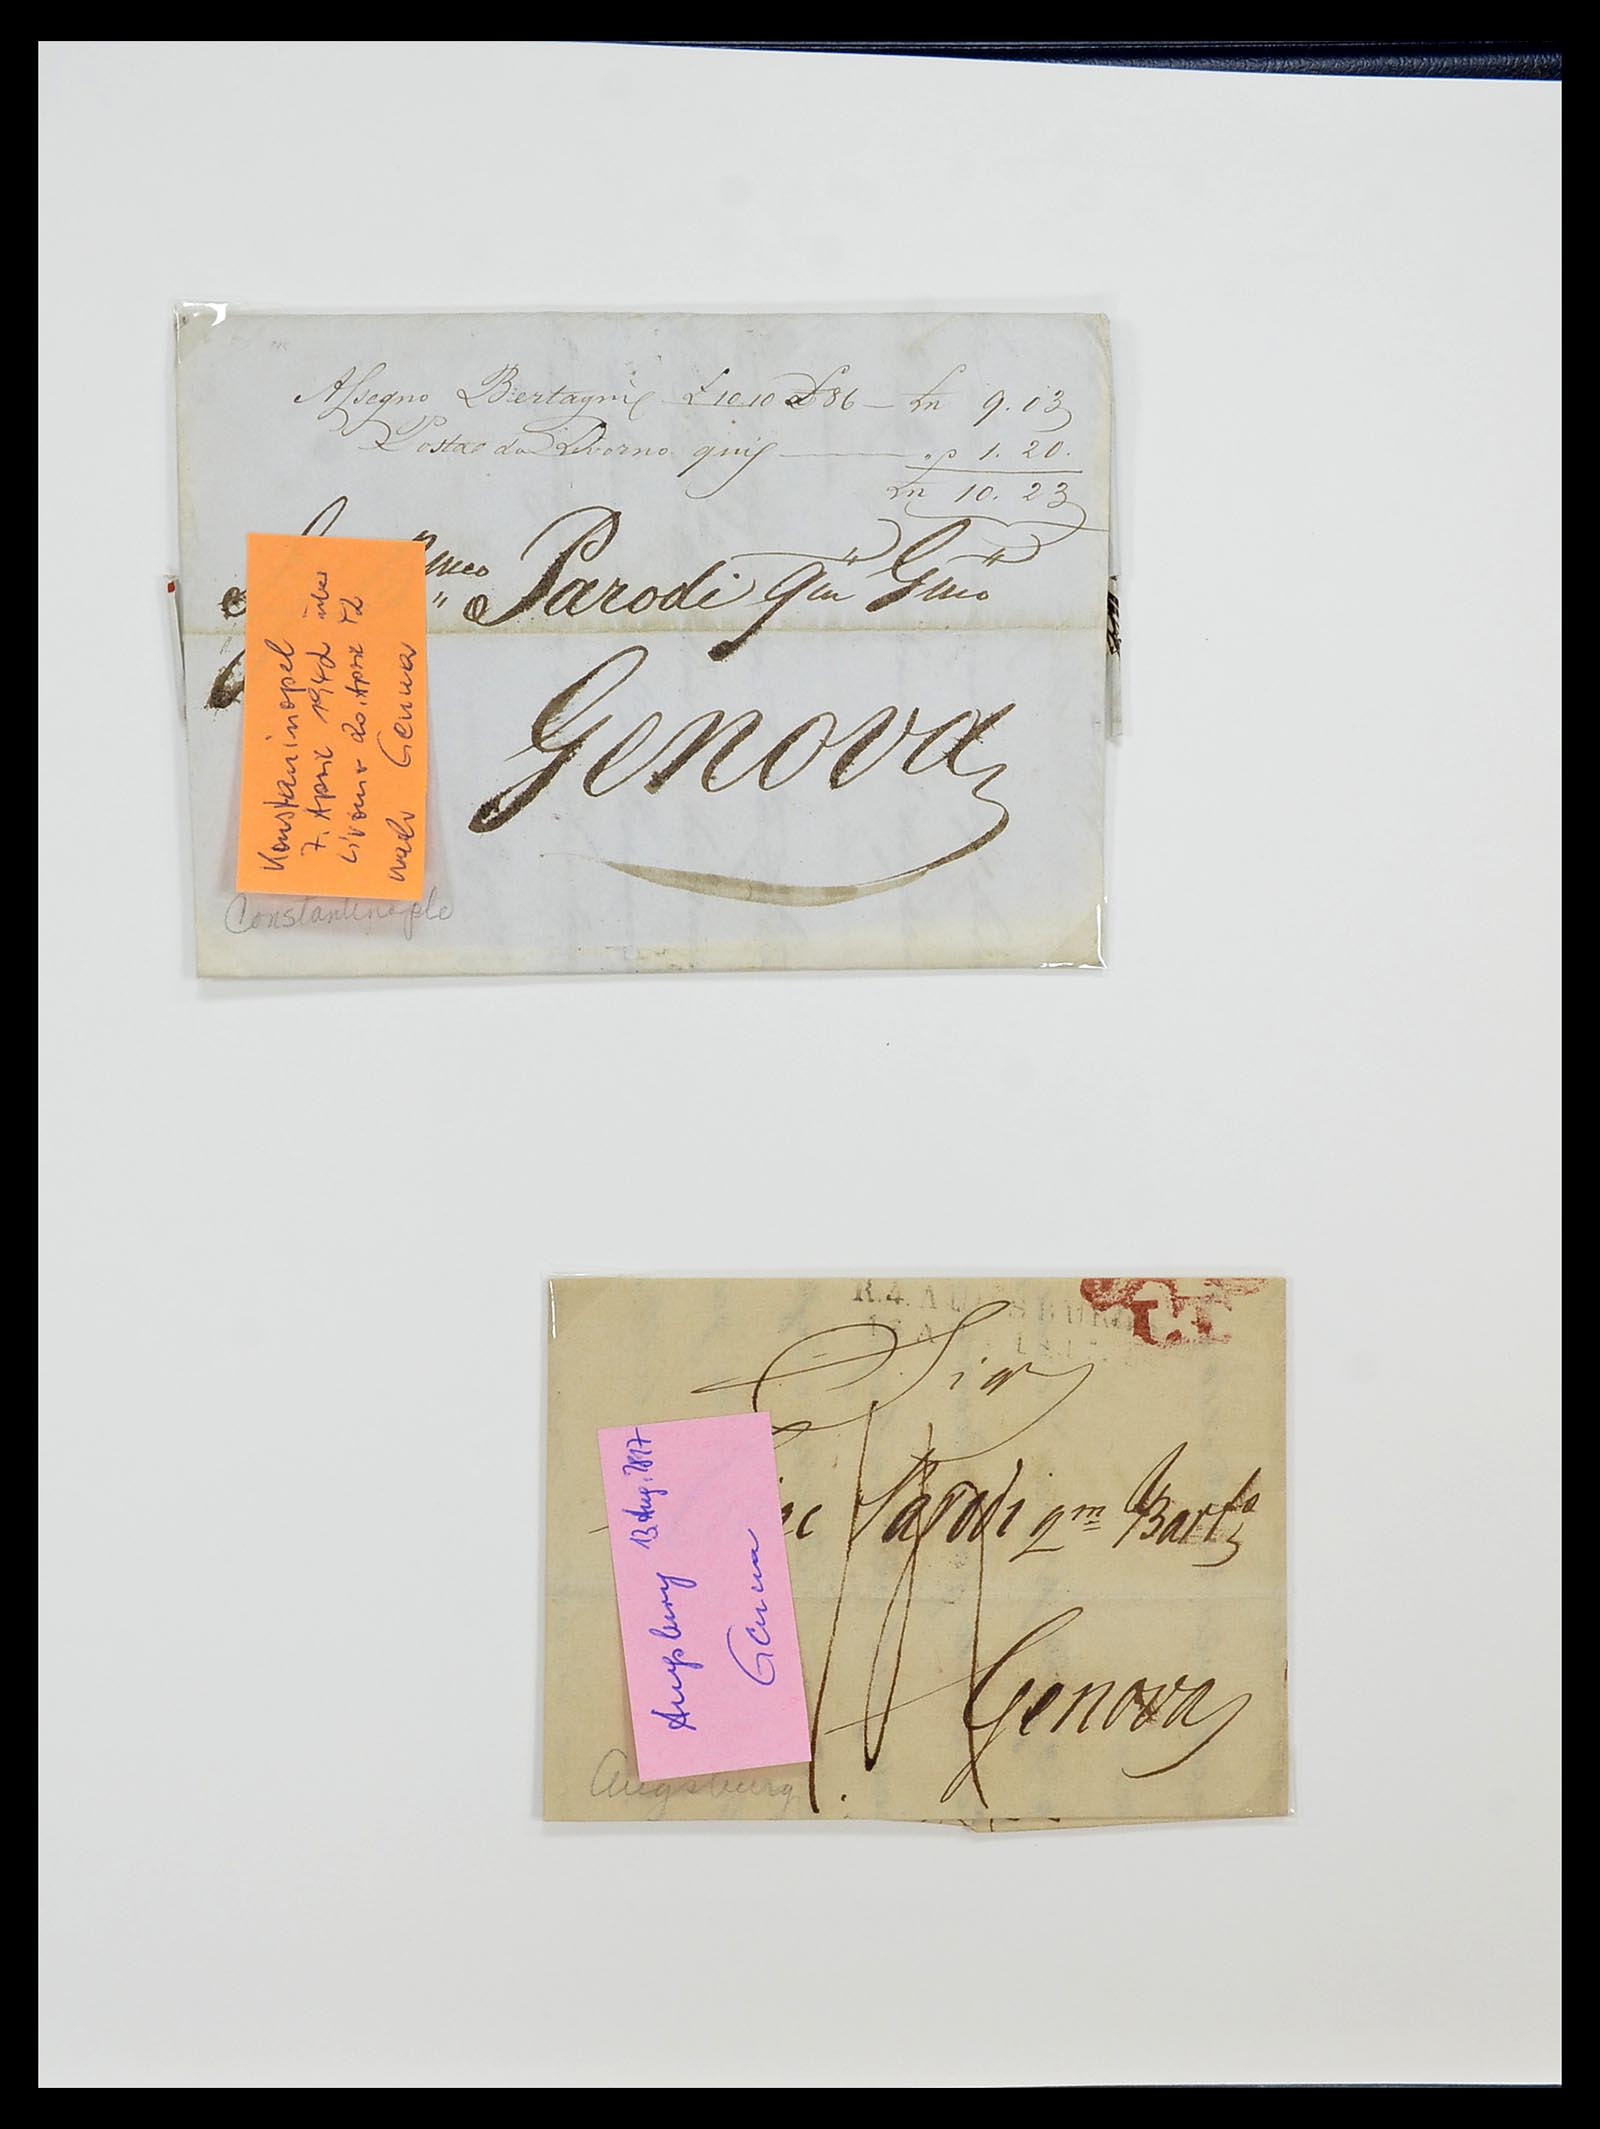 Assegno Bertagni £ 10.10 86 — Ln 9.03
Postae da Livorno — 1.20.
Ln 10.23
Parodi qm Gmo
Genova
Konstaninopel
7. April 1942 über
Livorno 20. April 42
nach Genua
Constantinople
R.4. AUGSBURG
L.I.
Sigr
Parodi qm Barta
Genova
Augsburg 13 Aug. 1817
Genua
Augsburg